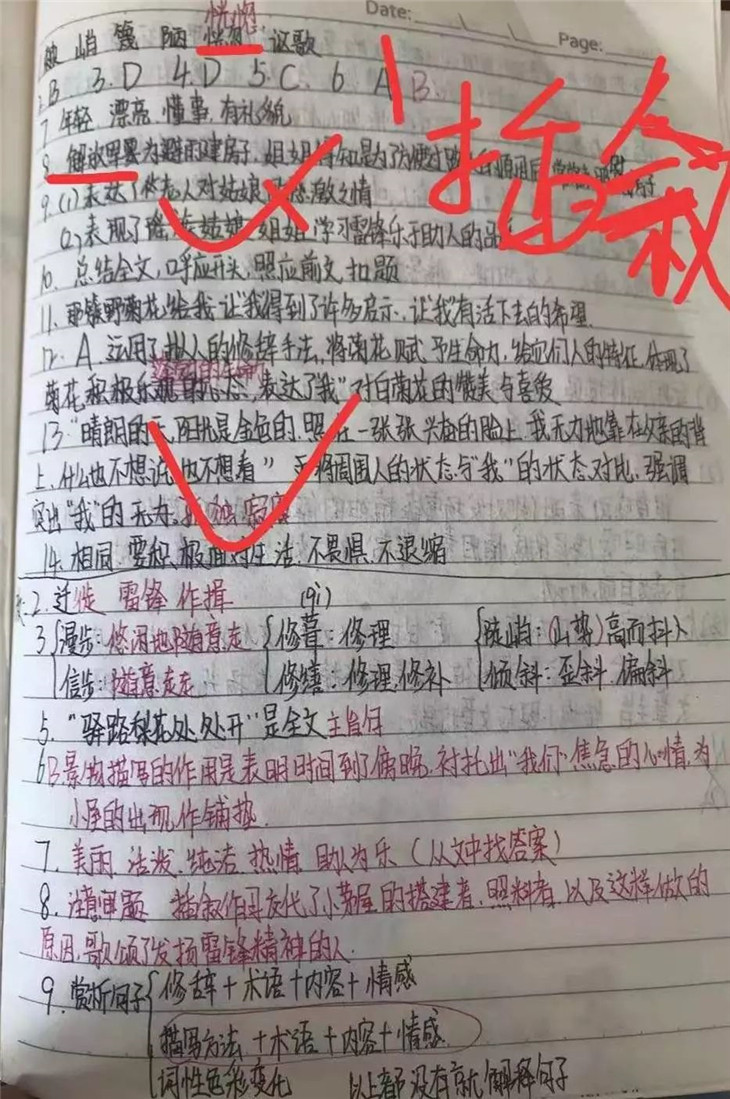 Date:
Page:
恍惚
陡峭 篾 陋 恍惚 讴歌
2.B 3.D 4.D 5.C. 6. A B
插叙
7 年轻、漂亮、懂事、有礼貌
8. 解放军为避雨建房子,姐姐
9. (1)表达了 老人对姑娘 感激之情
(2)表现了 姑娘 姐姐 学习雷锋乐于助人的品
10. 总结全文,呼应开头,照应前文,扣题
11. 那簇野菊花给我 让“我”得到了许多启示,让“我”有活下去的希望.
12. A. 运用了拟人的修辞手法,将菊花赋予生命力,给它们人的特征,体现了
菊花积极乐观的心态,表达了“我”对白菊花的赞美与喜爱
13.“晴朗的天,阳光是金色的.照在一张张兴奋的脸上.我无力地靠在父亲的背
上.什么也不想说,也不想看” 将周围人的状态与“我”的状态对比,强调
突出“我”的无力、孤独寂寞
14. 相同.要积极面对生活,不畏惧,不退缩
2. 迁徙 雷锋 作揖
(qì)
3 漫步:悠闲地随意走 修葺:修理 陡峭:(山势)高而抖人
信步:随意走走 修缮:修理.修补 倾斜:歪斜.偏斜
5.“驿路梨花处处开”是全文主旨句
6B景物描写的作用是表明时间到了傍晚.衬托出“我们”焦急的心情,为
小屋的出现作铺垫.
7. 美丽 活泼.纯洁.热情.助人为乐(从文中找答案)
8. 注意审题 插叙作用交代了小茅屋的搭建者,照料者,以及这样做的
原因,歌颂了发扬雷锋精神的人
9. 赏析句子 修辞+术语+内容+情感
描写方法+术语+内容+情感.
词性色彩变化 以上都没有就解释句子